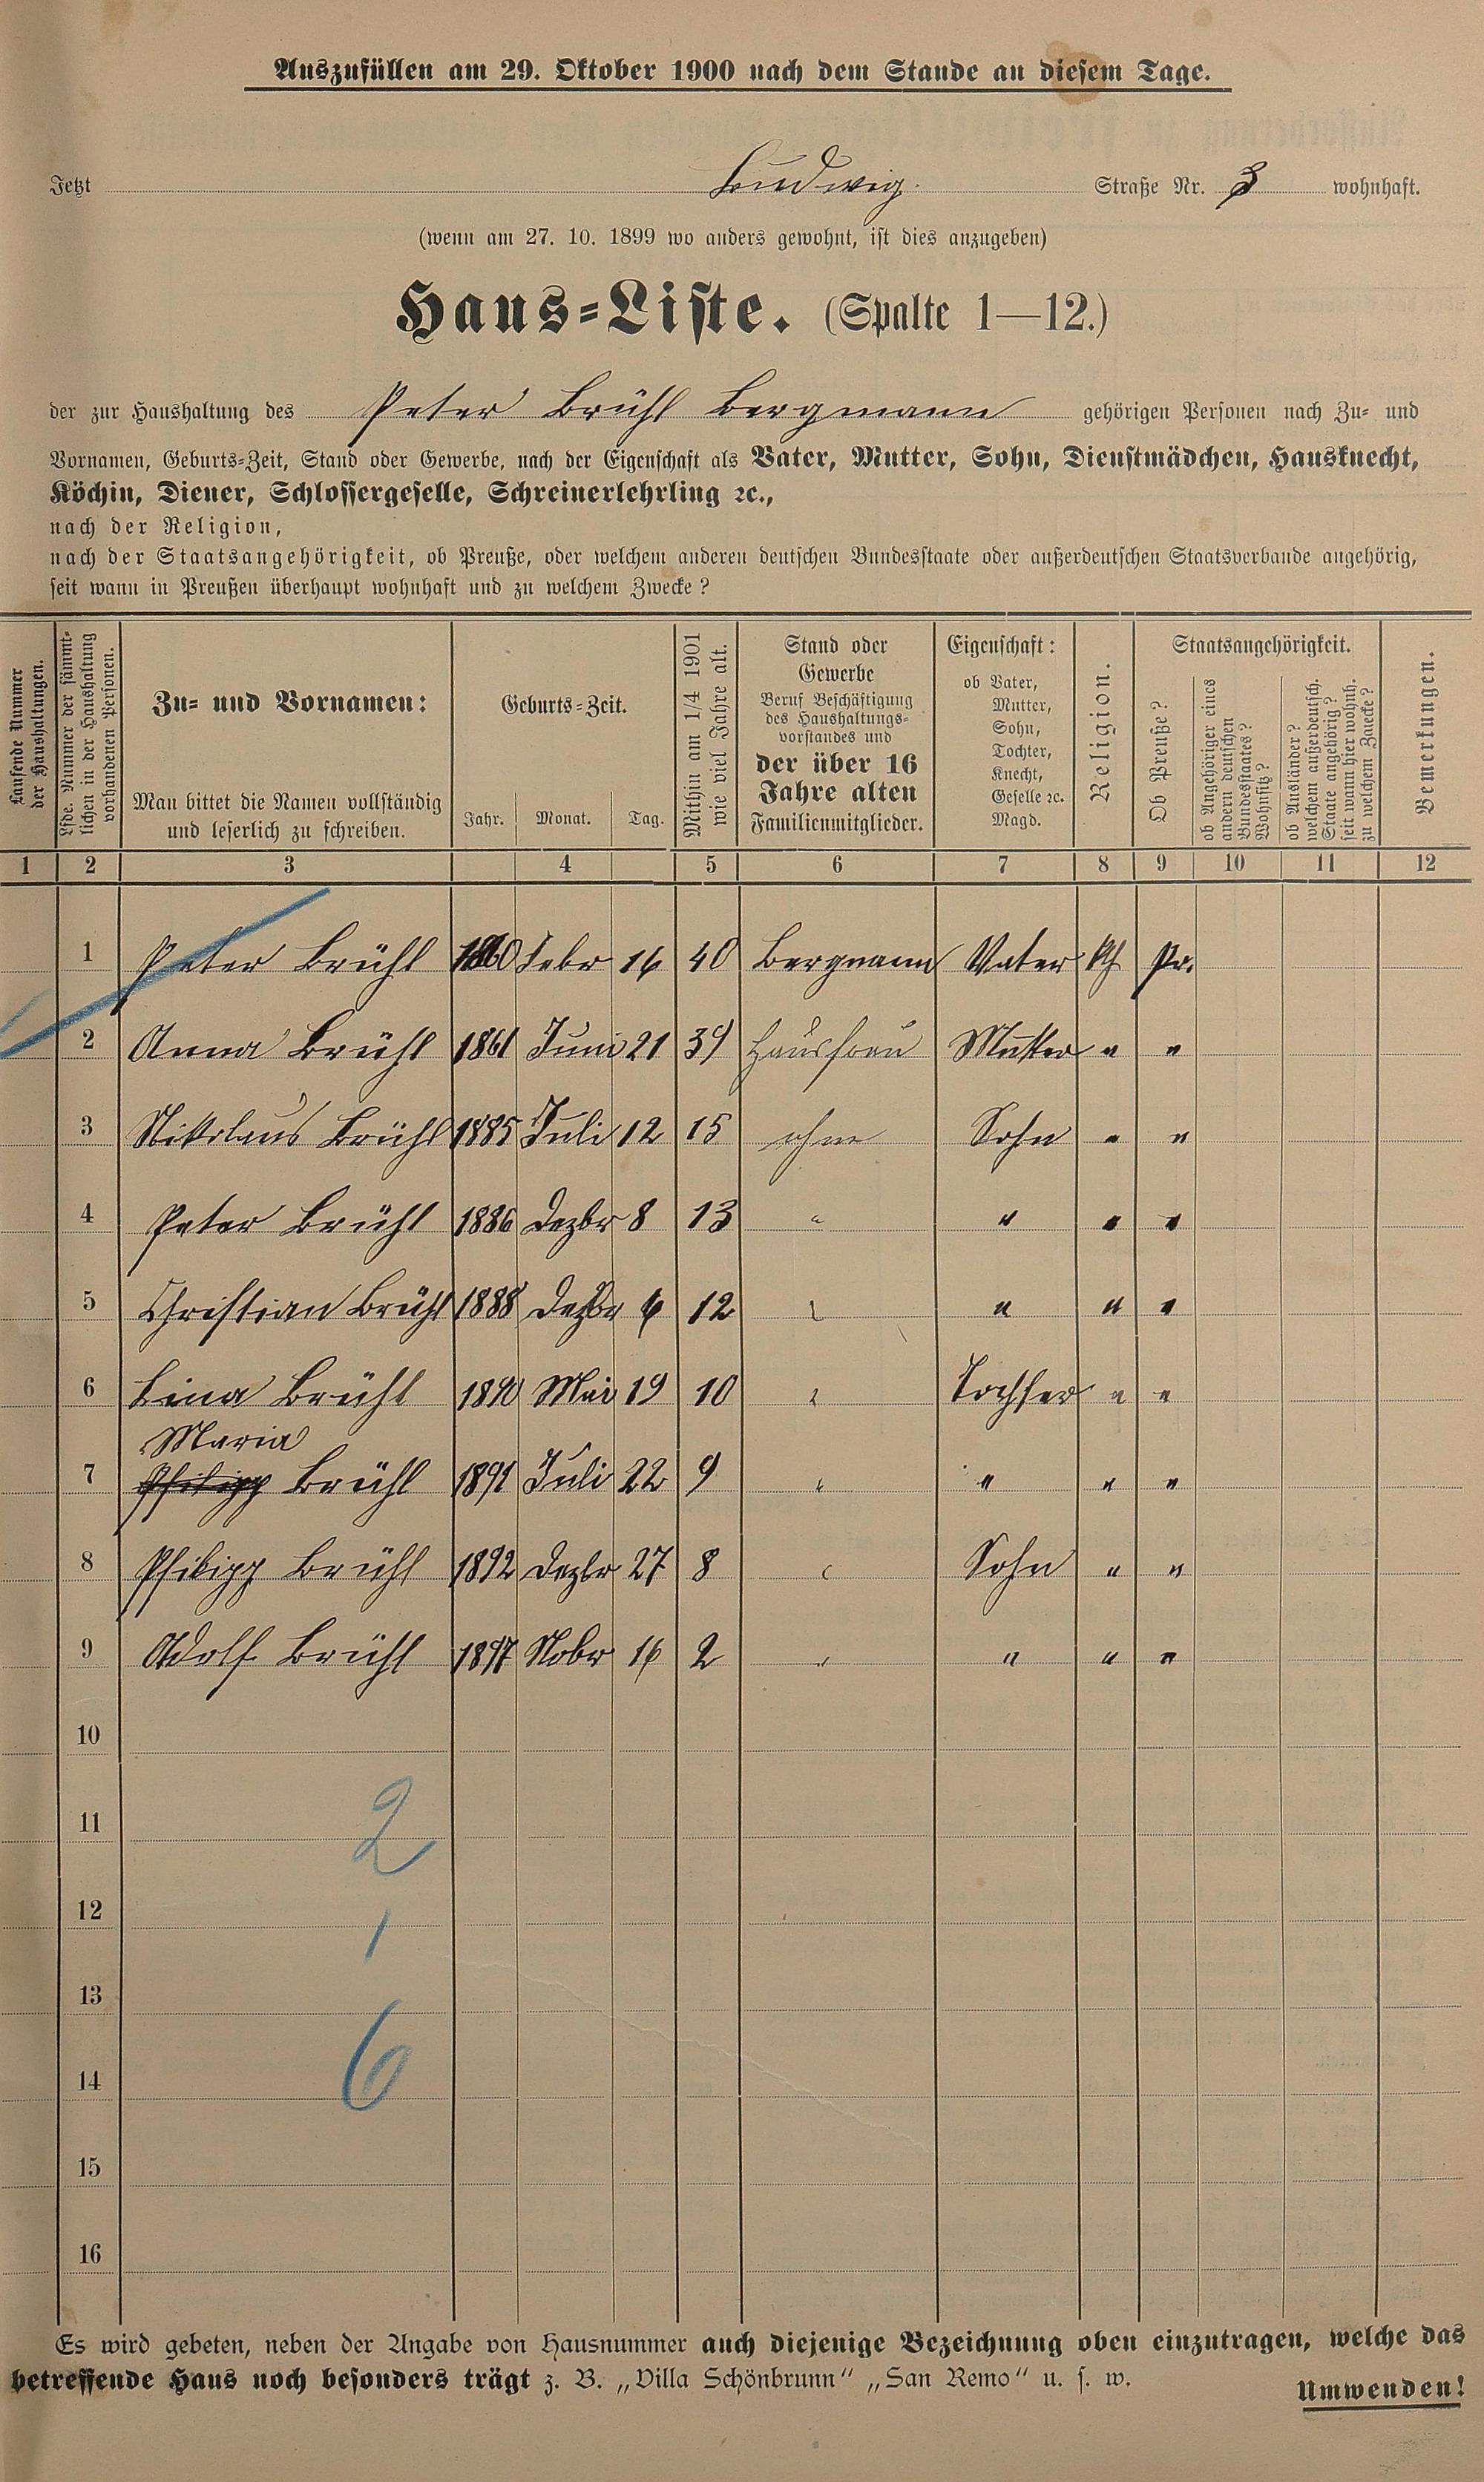 Auszufüllen am 29. Oktober 1900 nach dem Stande an diesem Tage.
Jetzt Ludwig Straße Nr. 3 wohnhaft.
(wenn am 27. 10. 1899 wo anders gewohnt, ist dies anzugeben)
Haus-Liste. (Spalte 1—12.)
der zur Haushaltung des Peter Brühl Bergmann gehörigen Personen nach Zu- und
Vornamen, Geburts-Zeit, Stand oder Gewerbe, nach der Eigenschaft als Vater, Mutter, Sohn, Dienstmädchen, Hausknecht,
Köchin, Diener, Schlossergeselle, Schreinerlehrling ꝛc.,
nach der Religion,
nach der Staatsangehörigkeit, ob Preuße, oder welchem anderen deutschen Bundesstaate oder außerdeutschen Staatsverbande angehörig,
seit wann in Preußen überhaupt wohnhaft und zu welchem Zwecke?
Laufende Nummer
der Haushaltungen.
Lfde. Nummer der sämmt-
lichen in der Haushaltung
vorhandenen Personen.
Zu- und Vornamen:
Man bittet die Namen vollständig
und leserlich zu schreiben.
Geburts-Zeit.
Jahr. Monat. Tag.
Mithin am 1/4 1901
wie viel Jahre alt.
Stand oder
Gewerbe
Beruf Beschäftigung
des Haushaltungs-
vorstandes und
der über 16
Jahre alten
Familienmitglieder.
Eigenschaft:
ob Vater,
Mutter,
Sohn,
Tochter,
Knecht,
Geselle ꝛc.
Magd.
Religion.
Staatsangehörigkeit.
Ob Preuße?
ob Angehöriger eines
andern deutschen
Bundesstaates?
Wohnsitz?
ob Ausländer?
welchem außerdeutsch.
Staate angehörig?
seit wann hier wohnh.
zu welchem Zwecke?
Bemerkungen.
1 2 3 4 5 6 7 8 9 10 11 12
1 Peter Brühl 1860 Febr 16 40 Bergmann Vater kth Pr.
2 Anna Brühl 1861 Juni 21 39 Hausfrau Mutter " "
3 Nikolaus Brühl 1885 Juli 12 15 ohne Sohn " "
4 Peter Brühl 1886 Dezbr 8 13 " " " "
5 Christian Brühl 1888 Dezbr 6 12 " " " "
6 Lina Brühl 1890 Mai 19 10 " Tochter " "
Maria
7 Philipp Brühl 1891 Juli 22 9 " " " "
8 Philipp Brühl 1892 Dezbr 27 8 " Sohn " "
9 Adolf Brühl 1897 Nobr 16 2 " " " "
10
11 2
12 1
13
14 6
15
16
Es wird gebeten, neben der Angabe von Hausnummer auch diejenige Bezeichnung oben einzutragen, welche das
betreffende Haus noch besonders trägt z. B. „Villa Schönbrunn“ „San Remo“ u. s. w.
Umwenden!